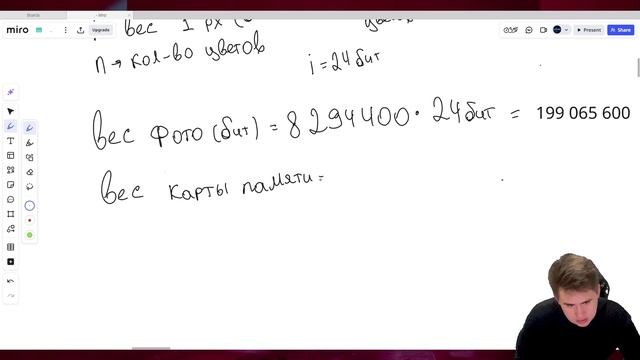 miro
Upgrade
Present
Share
вес 1 px
n → кол-во цветов
i = 24 бит
вес фото (бит) = 8294400 · 24 бит = 199 065 600
вес карты памяти =